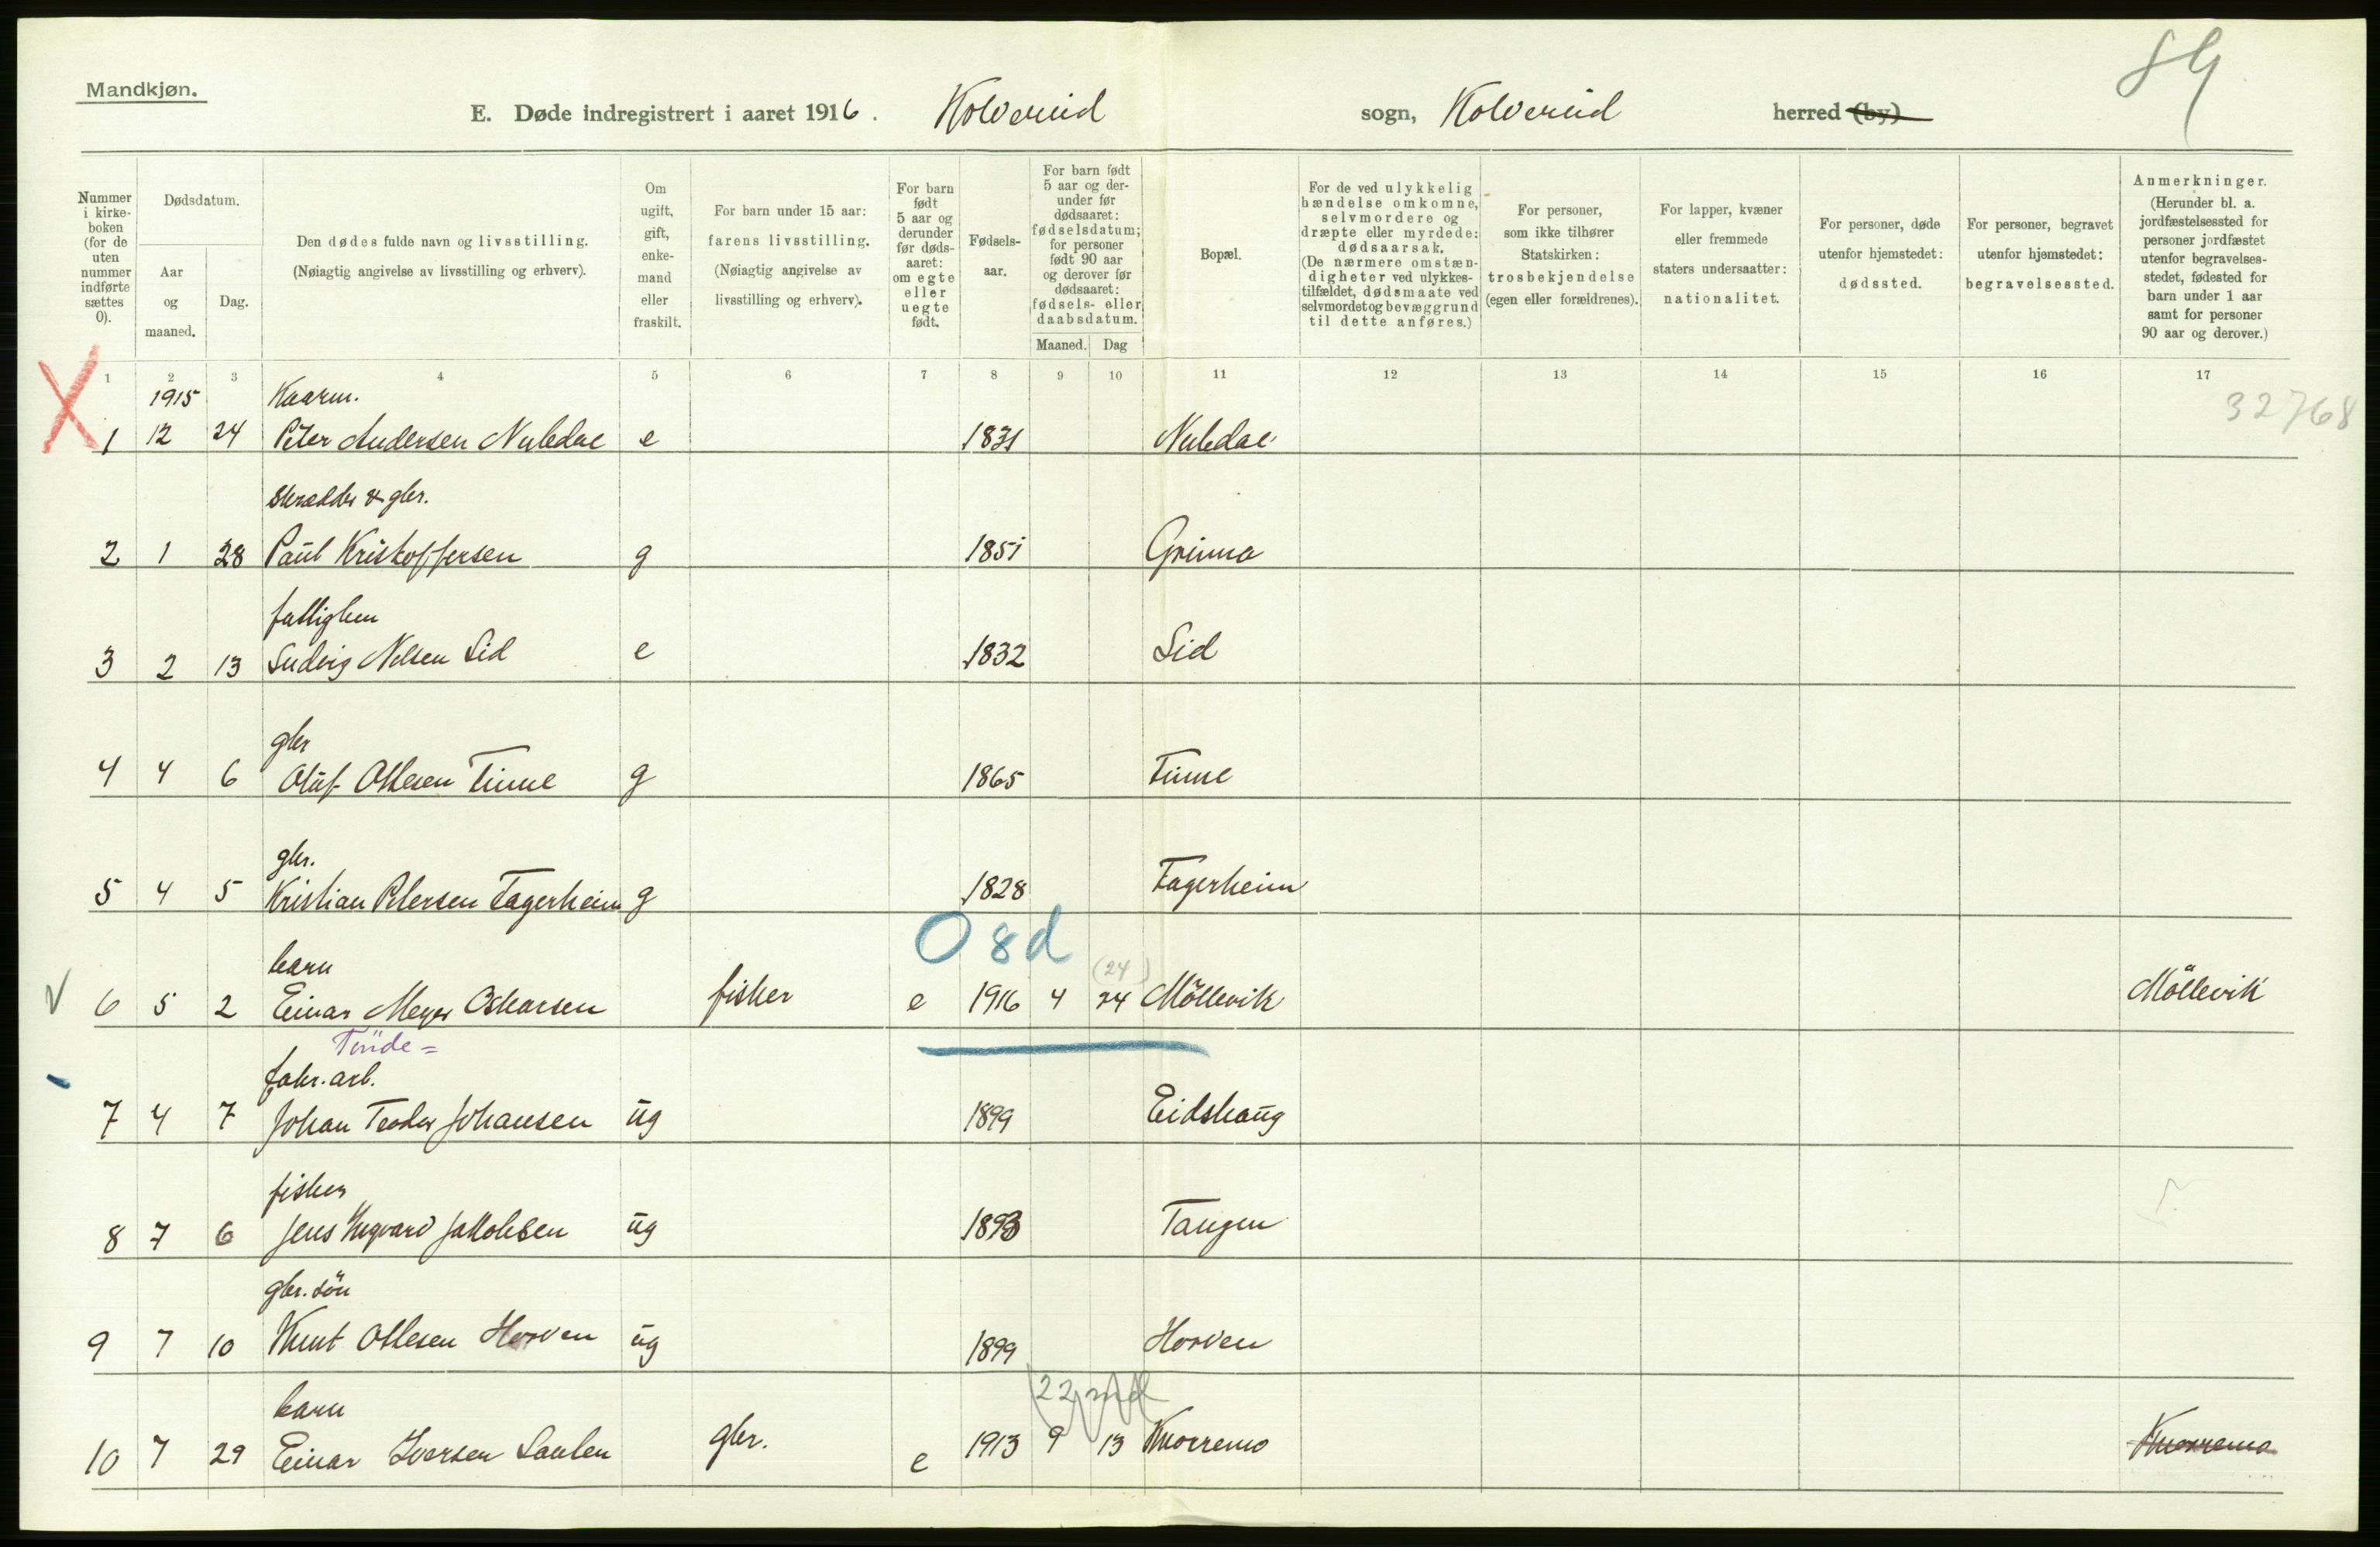 Mandkjøn.
E. Døde indregistrert i aaret 1916. Kolvereid sogn, Kolvereid herred (by)
Nummer i kirkeboken (for de uten nummer indførte sættes 0).
Dødsdatum.
Aar og maaned.
Dag.
Den dødes fulde navn og livsstilling.
(Nøiagtig angivelse av livsstilling og erhverv).
Om ugift, gift, enkemand eller fraskilt.
For barn under 15 aar: farens livsstilling.
(Nøiagtig angivelse av livsstilling og erhverv).
For barn født 5 aar og derunder før dødsaaret: om egte eller uegte født.
Fødselsaar.
For barn født 5 aar og derunder før dødsaaret: fødselsdatum; for personer født 90 aar og derover før dødsaaret: fødsels- eller daabsdatum.
Maaned. Dag
Bopæl.
For de ved ulykkelig hændelse omkomne, selvmordere og dræpte eller myrdede: dødsaarsak.
(De nærmere omstændigheter ved ulykkestilfældet, dødsmaate ved selvmordet og bevæggrund til dette anføres.)
For personer, som ikke tilhører Statskirken: trosbekjendelse (egen eller forældrenes).
For lapper, kvæner eller fremmede staters undersaatter: nationalitet.
For personer, døde utenfor hjemstedet: dødssted.
For personer, begravet utenfor hjemstedet: begravelsessted.
Anmerkninger.
(Herunder bl. a. jordfæstelsessted for personer jordfæstet utenfor begravelsesstedet, fødested for barn under 1 aar samt for personer 90 aar og derover.)
1 2 3 4 5 6 7 8 9 10 11 12 13 14 15 16 17
1915 Kaarm. 32768
1 12 24 Peter Andersen Nubdal e 1831 Nubdal
Skrædder & gbr.
2 1 28 Paul Kristoffersen g 1851 Grinna
fattiglem
3 2 13 Ludvig Nelsen Lid e 1832 Lid
gbr
4 4 6 Oluf Ottesen Finne g 1865 Finne
gbr.
5 4 5 Kristian Petersen Fagerheim g 1828 Fagerheim
0 8 d
barn (24)
6 5 2 Einar Meyer Oskarsen fisker e 1916 4 24 Möllevik Möllevik
Tønde=
fabr. arb.
7 4 7 Johan Teodor Johansen ug 1899 Eidshaug
fisker
8 7 6 Jens Ingvard Jakobsen ug 1893 Tangen
gbr. sön
9 7 10 Knut Ottesen Horven ug 1899 Horven
barn 22 md
10 7 29 Einar Iversen Saulen gbr. e 1913 9 13 Knorremo Knorremo